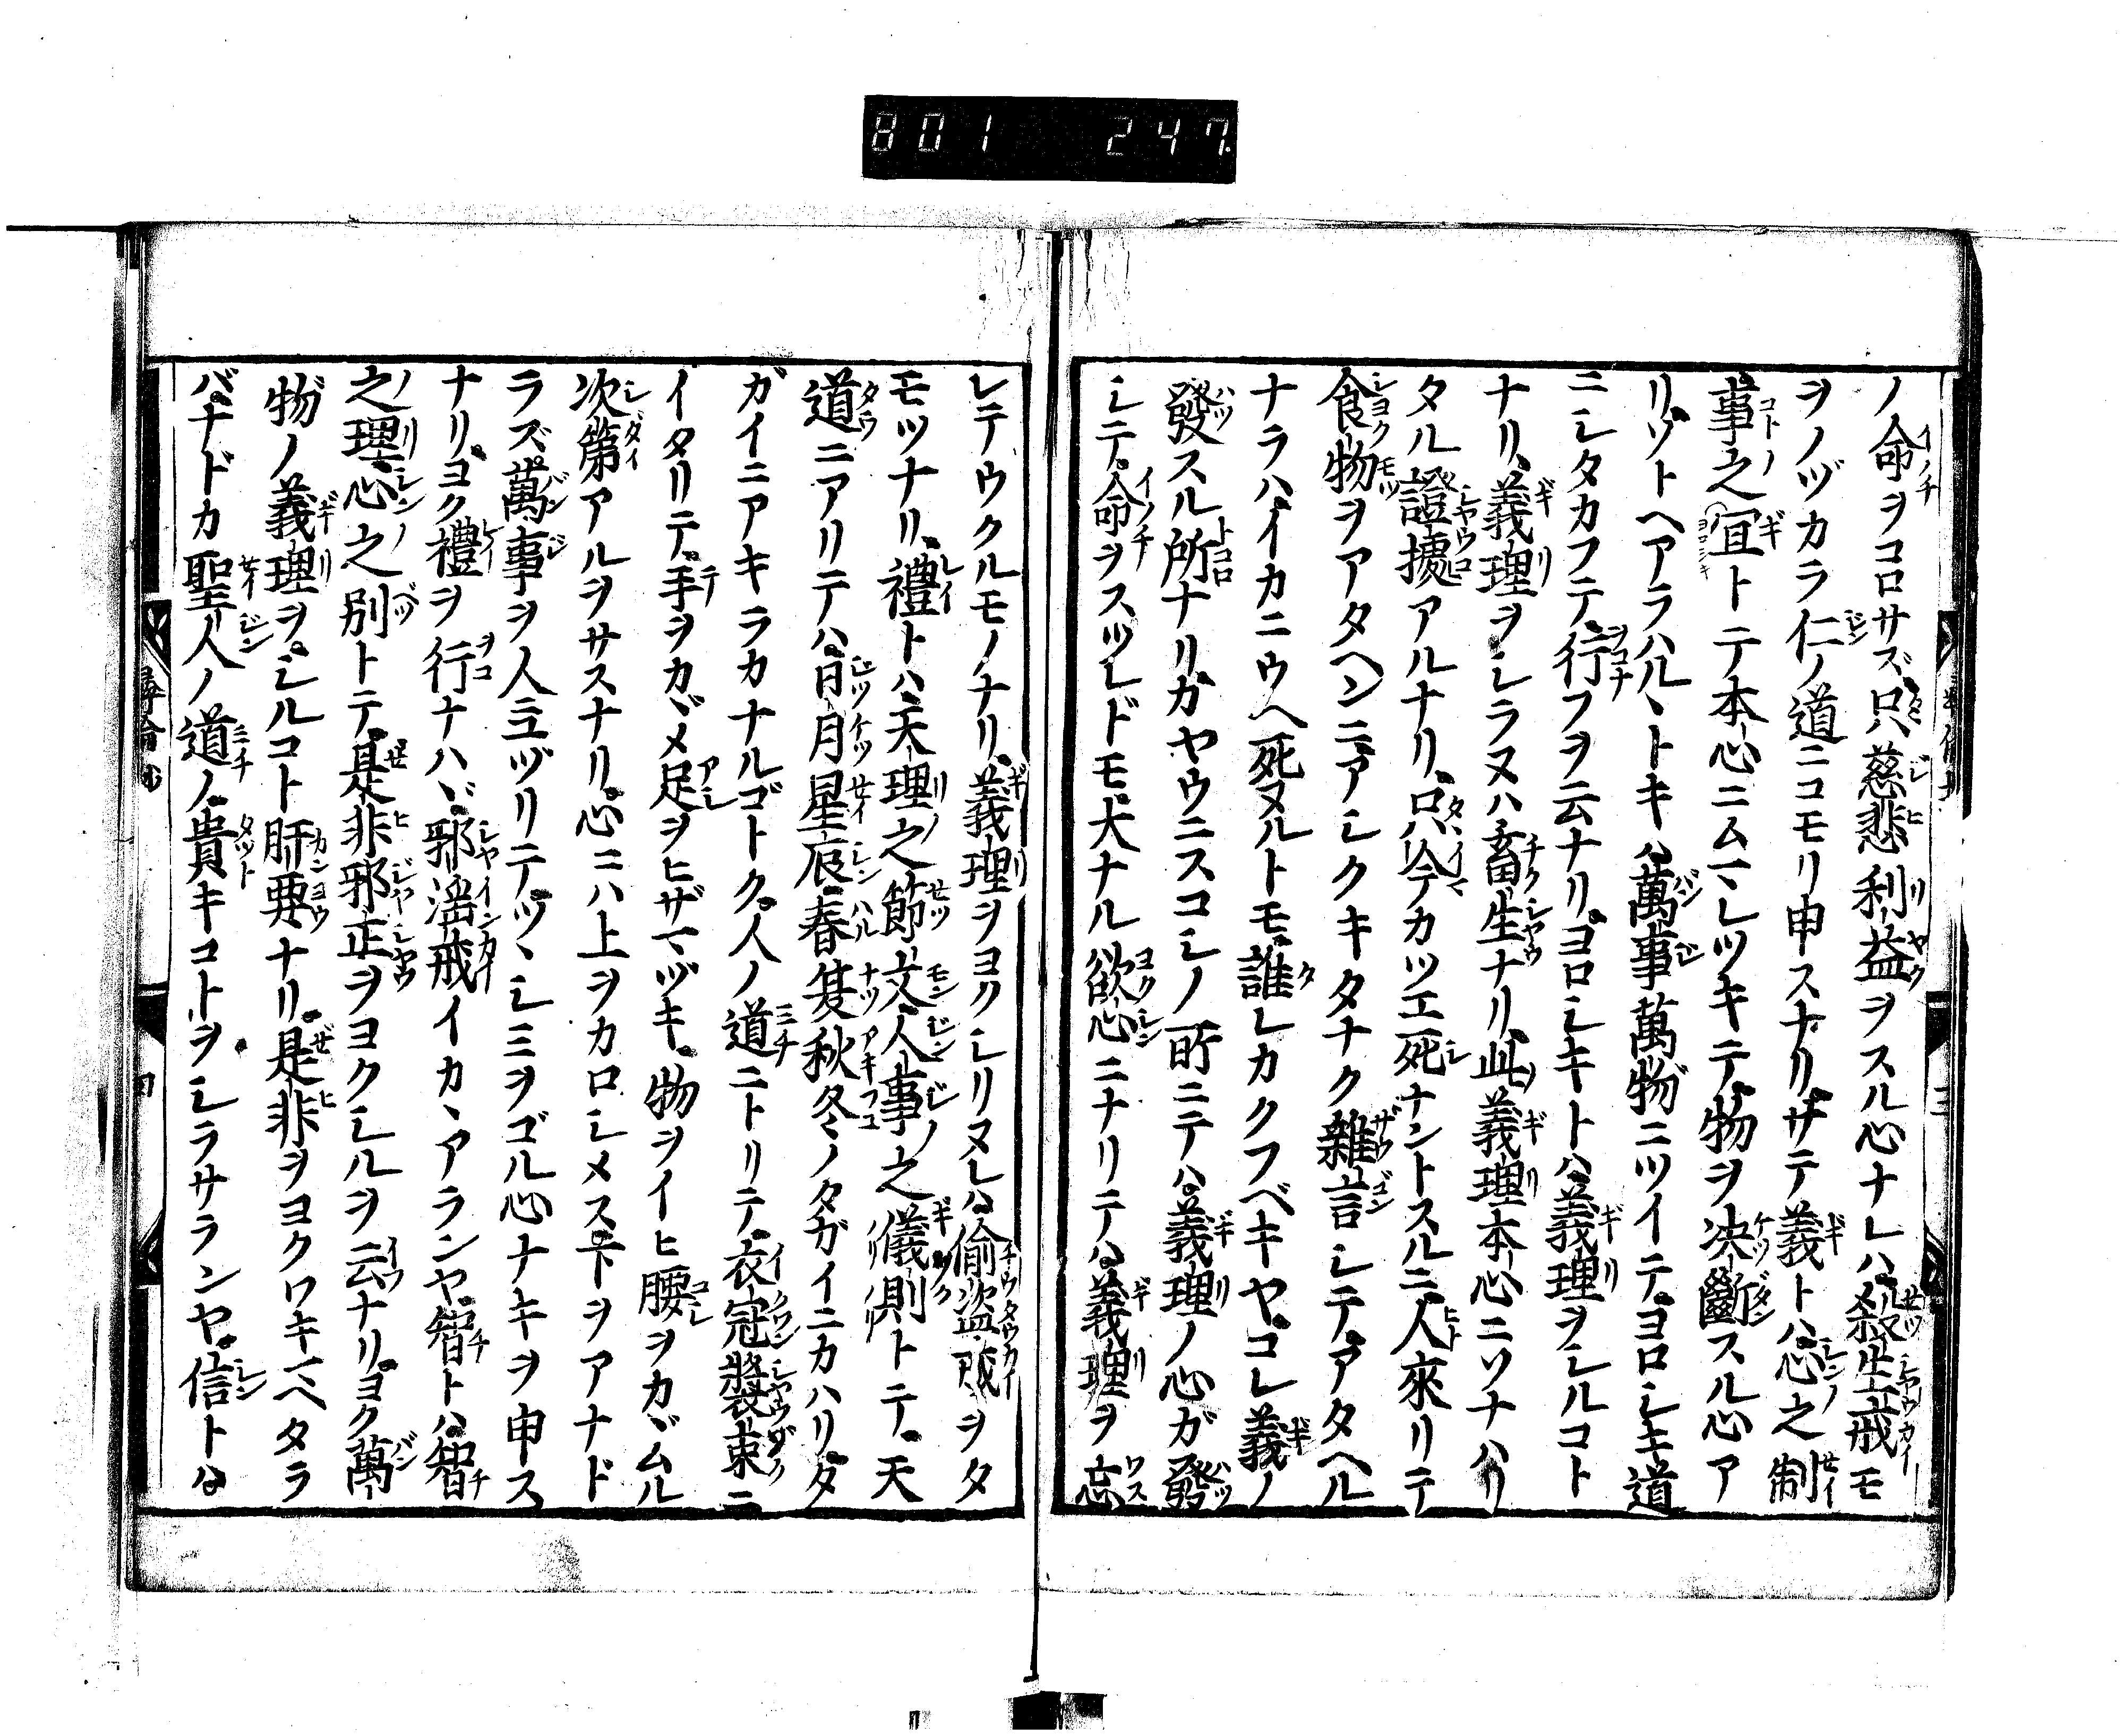 801 247
ノ命ヲコロサズ只慈悲利益ヲスル心ナレハ殺生戒モ
ヲノヅカラ仁ノ道ニコモリ申スナリ。サテ義トハ心之制
事之宜トテ本心ニムマレツキテ物ヲ決斷スル心ア
リソトヘアラハルヽトキハ萬事萬物ニツイテヨロシキ道
ニシタカフテ行フヲ云ナリ。ヨロシキトハ義理ヲシルコト
ナリ義理ヲシラヌハ畜生ナリ此義理本心ニソナハリ
タル證據アルナリ。只今カツエ死ナントスルニ人來リテ
食物ヲアタヘンニアシクキタナク雜言シテアタヘル
ナラハイカニウヘ死ヌルトモ誰レカクフベキヤ。コレ義ノ
發スル所ナリ。カヤウニスコシノ所ニテハ義理ノ心ガ發
シテ命ヲスツレドモ大ナル欲心ニナリテハ義理ヲ忘
レテウクルモノナリ。義理ヲヨクシリヌレハ偷盗戒ヲタ
モツナリ禮トハ天理之節文人事之儀則トテ。天
道ニアリテハ日月星辰春夏秋冬ノタガイニカハリ。タ
ガイニアキラカナルゴトク。人ノ道ニトリテ。衣冠裝束ニ
イタリテ手ヲカヾメ足ヲヒザマヅキ。物ヲイヒ腰ヲカヾムル
次第アルヲサスナリ。心ニハ上ヲカロシメス下ヲアナド
ラズ萬事ヲ人ニユヅリテツヽシミヲゴル心ナキヲ申ス
ナリ。ヨク禮ヲ行ナハヾ邪淫戒イカヽアランヤ。智トハ智
之理心之別トテ。是非邪正ヲヨクシルヲ云ナリ。ヨク萬
物ノ義理ヲ。シルコト肝要ナリ。是非ヲヨクワキマヘタラ
バナドカ聖人ノ道ノ貴キコトヲシラサランヤ。信トハ